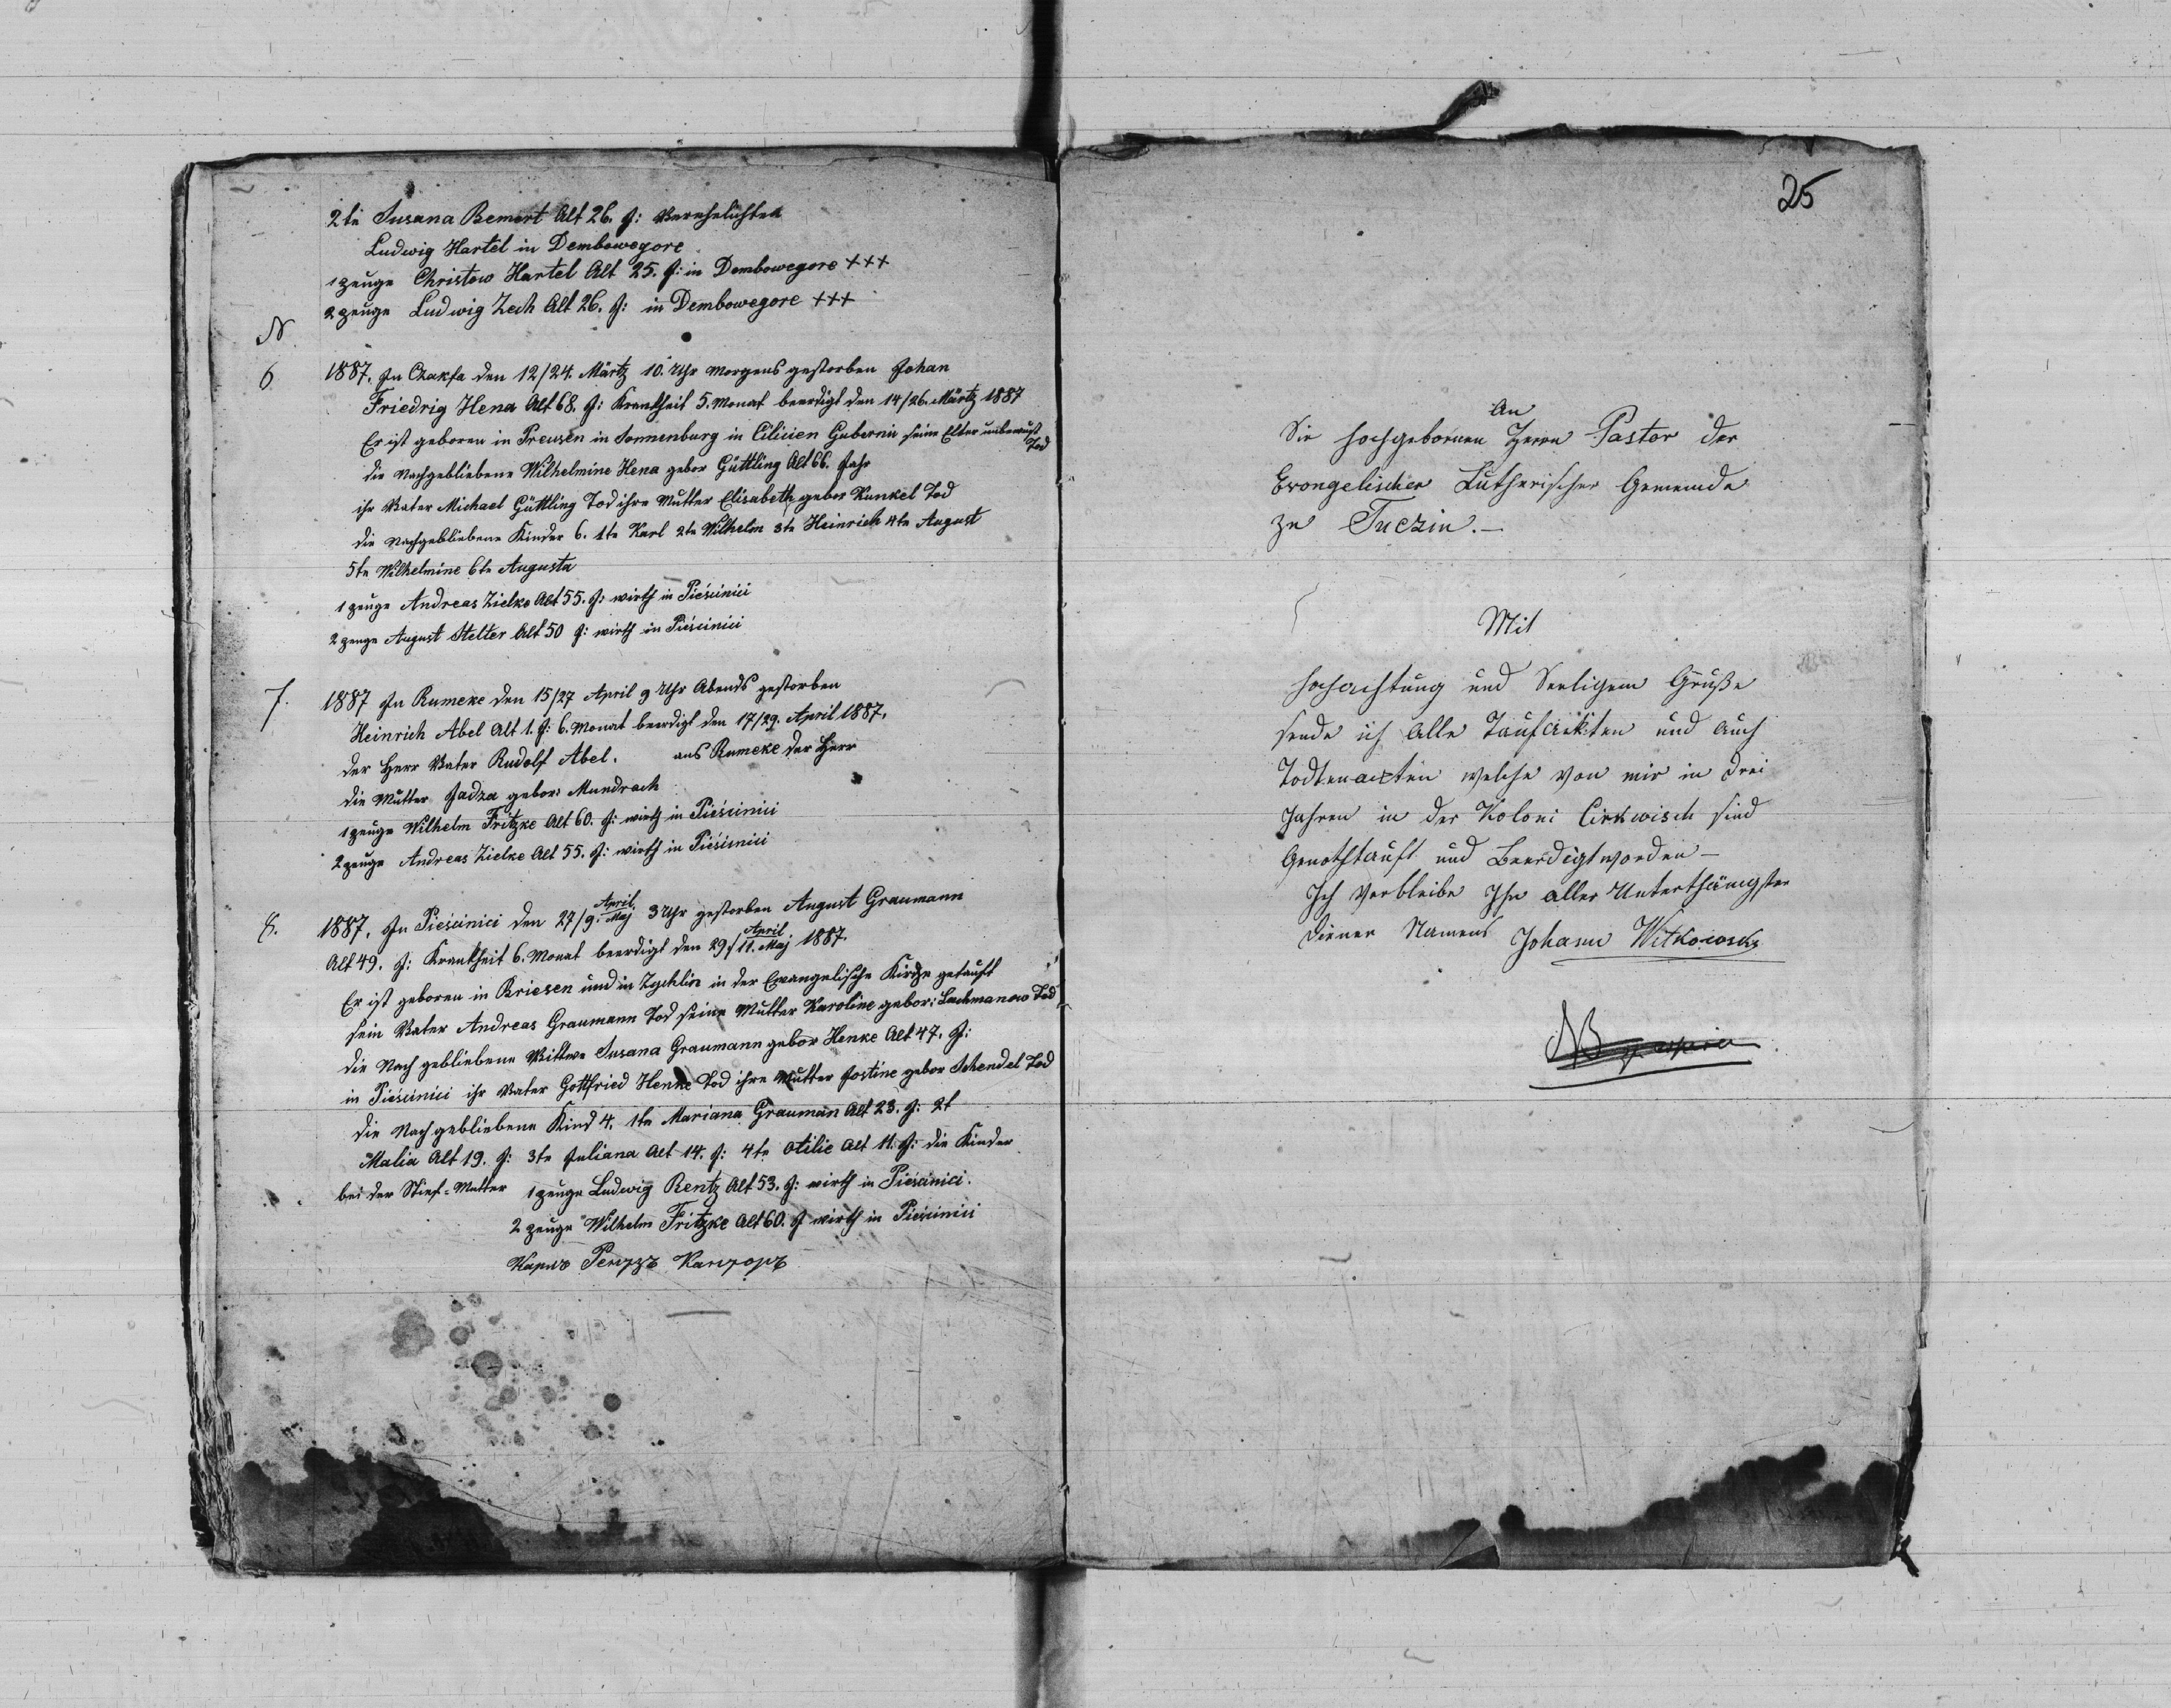 2te Susana Bemert Alt 26. J: Verehelichten
Ludwig Hartel in Dembowegore
1 zeuge Christow Hartel Alt 25. J: in Dembowegore +++
2 zeuge Ludwig Zech Alt 26. J: in Dembowegore +++
N.
6 1887. In Czakfa den 12/24. Märtz 10. Uhr Morgens gestorben Johan
Friedrig Hena Alt 68. J: Krankheit 5. Monat beerdigt den 14/26. Märtz 1887
Er ist geboren in Preusen in Sonnenburg in Cilicien Gubernia seine Elter unbewust Tod
die Nachgebliebene Wilhelmine Hena gebor Güttling Alt 66. Jahr
ihr Vater Michael Güttling Tod ihre Mutter Elisabeth gebor Kunkel Tod
die Nachgebliebene Kinder 6. 1te Karl 2te Wilhelm 3te Heinrich 4te August
5te Wilhelmine 6te Augusta
1 zeuge Andreas Zielke Alt 55. J: wirth in Pieścinici
2 zeuge August Stelter Alt 50 J: wirth in Pieścinici
7. 1887 In Rumeke den 15/27 April 9 Uhr Abends gestorben
Heinrich Abel Alt 1. J: 6. Monat beerdigt den 17/29. April 1887.
der Herr Vater Rudolf Abel. aus Rumeke der Herr
die Mutter Jadza gebor: Mundrach
1 zeuge Wilhelm Fritzke Alt 60. J: wirth in Pieścinici
2 zeuge Andreas Zielke Alt 55. J: wirth in Pieścinici
8. 1887. In Pieścinici den 27/9. April Maj 3 Uhr gestorben August Graumann
Alt 49. J: Krankheit 6. Monat beerdigt den 29/11. April Maj 1887.
Er ist geboren in Briesen und in Zychlin in der Evangelische Kirche getauft
sein Vater Andreas Graumann Tod seine Mutter Karoline gebor: Lachmanow Tod
die Nachgebliebene Wittwe Susana Graumann gebor Henke Alt 47. J:
in Pieścinici ihr Vater Gottfried Henke Tod ihre Mutter Jostine gebor Schendel Tod
die Nachgebliebene Kind 4. 1te Mariana Grauman Alt 23. J: 2t
Malia Alt 19. J: 3te Juliana Alt 14. J: 4te Otilie Alt 11. J: die Kinder
bei der Stief=Mutter 1 zeuge Ludwig Rentz Alt 53. J: wirth in Pieścinici.
2 zeuge Wilhelm Fritzke Alt 60. J wirth in Pieścinici
Карлъ Рентзъ Канторъ
25
An
Sie Hochgebornen Herrn Pastor der
Evongelischer Lutherischer Gemeinde
zu Tuczin.—
Mit
Hochachtung und Seeligem Grüße
sende ich Alle Taufackten und Auch
Todtenackten welche von mir in drei
Jahren in der Koloni Cirkwisch sind
Genothtauft und Beerdigt worden—
Ich Verbleibe Ihr aller Unterthänigster
Diener Namens Johann Witkowsky